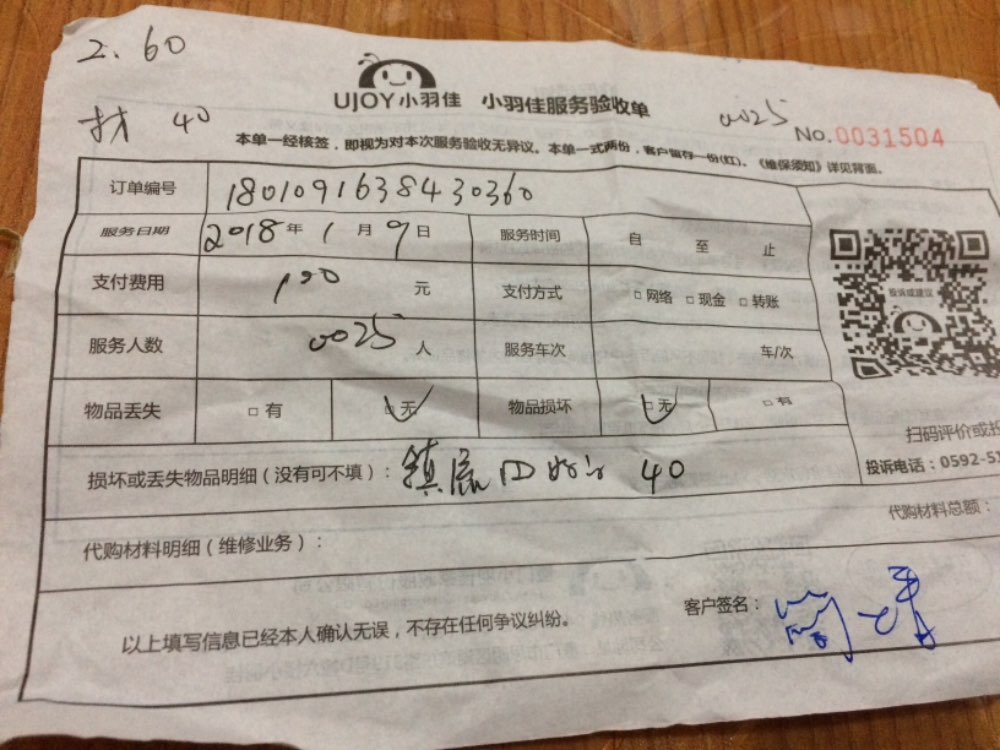 2. 60
UJOY小羽佳 小羽佳服务验收单
找 40
0025 No.0031504
本单一经核签，即视为对本次服务验收无异议。本单一式两份，客户留存一份(红)。《维保须知》详见背面。
订单编号 1801091638430360
服务日期 2018年1月9日 服务时间 自 至 止
支付费用 100 元 支付方式 □网络 □现金 □转账
投诉或建议
服务人数 0025 人 服务车次 车/次
物品丢失 □有 □无 物品损坏 □无 □有
扫码评价或投
损坏或丢失物品明细（没有可不填）： 40
投诉电话：0592-51
代购材料总额：
代购材料明细（维修业务）：
客户签名：
以上填写信息已经本人确认无误，不存在任何争议纠纷。